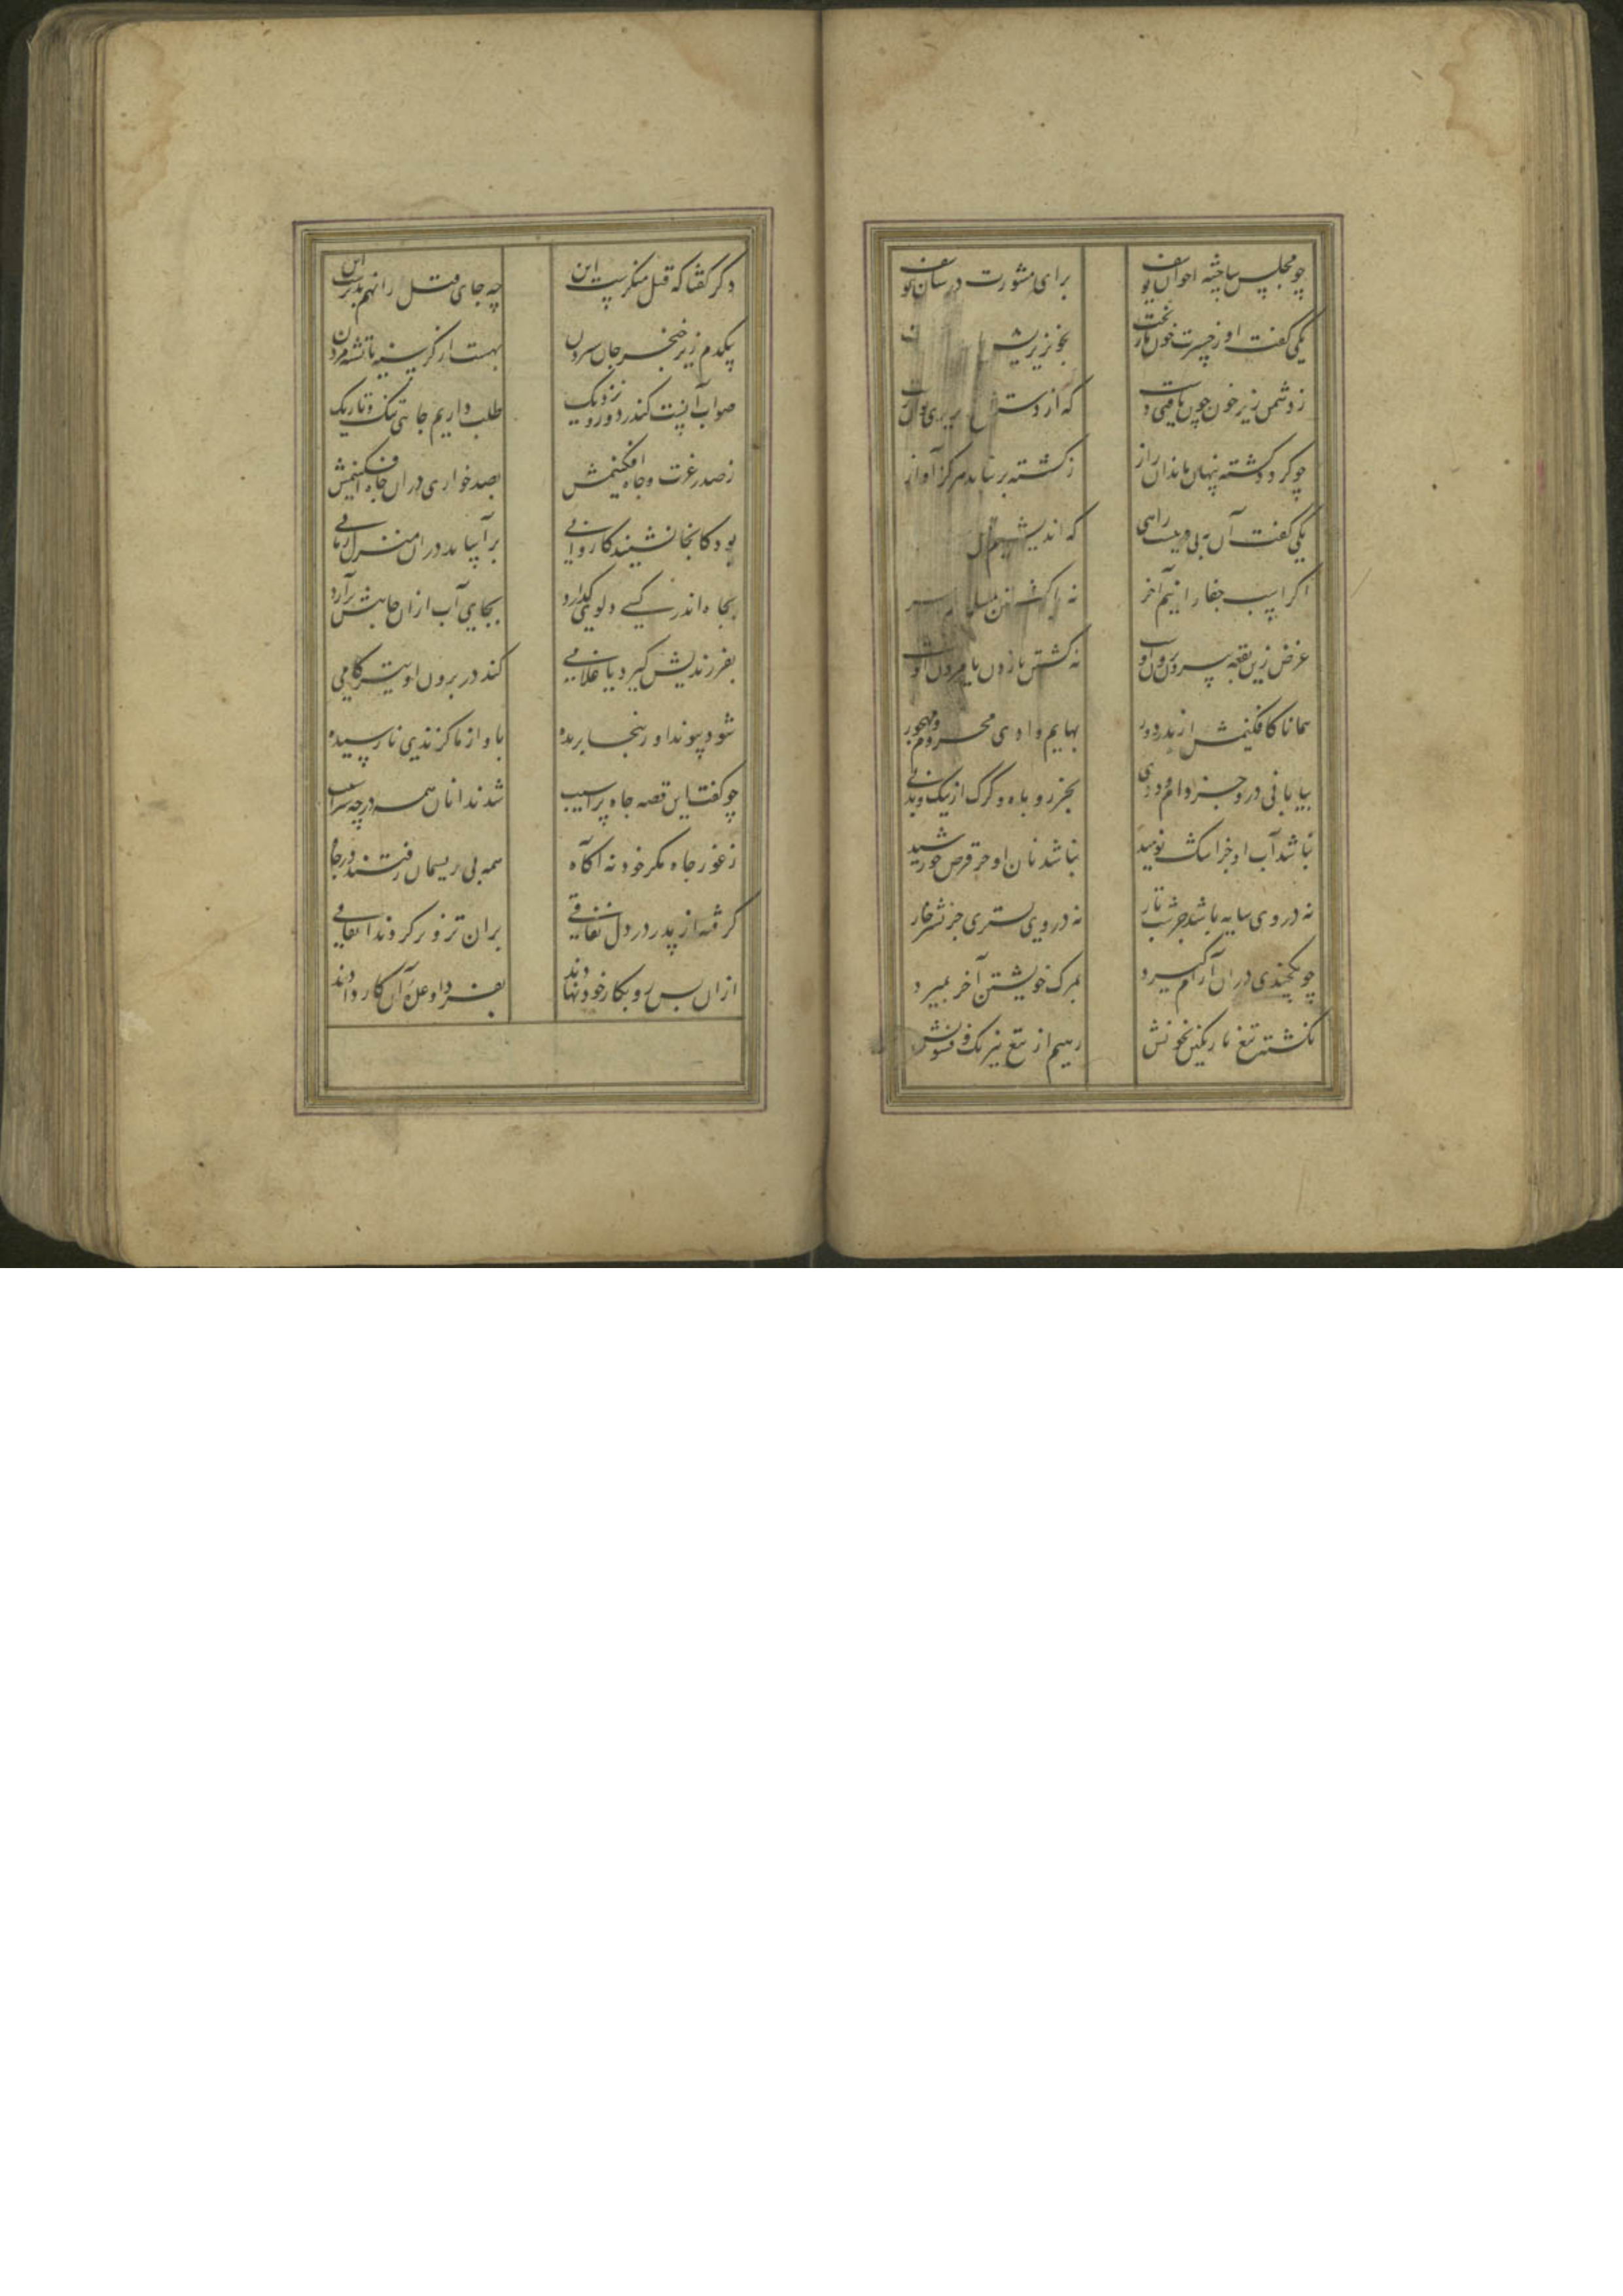 چو مجلس ساختند اخوان یوسف برای مشورت در شان یوسف
یکی گفت او ز حسرت خون ما ریخت بخونریزیش
ز دشمن زیر خون چون یافتی دست که از دستش
چو گردد کشته پنهان ماند آن راز ز کشته بر نیاید هرگز آواز
یکی گفت آن به بی دینیست راهی که اندیشیم
اگر اسب جفا رانیم آخر نه
غرض زین بقعه بیرون بردن او نه کشتن یا زدن یا مردن او
همانا کافکنیمش از پدر دور بهایم وادی محروم و مهجور
بیابانی درو جز دام و دد نی بجز روباه و گرگ از نیک و بد نی
نباشد آب او جز اشک نومید نباشد نان او جز قرص خورشید
نه در وی سایه باشد جز شب تار نه در وی بستری جز نشتر خار
چو یکچندی در آن آرام گیرد بمرگ خویشتن آخر بمیرد
نگشته تیغ ما رنگین بخونش رهیم از تیغ نیرنگ و فسونش
دگر گفتا که قتل منکرست این چه جای قتل را نهم بدترست این
یکدم زیر خنجر جان سپردن بهست از گرسنه یا تشنه مردن
صواب آنست کندر دور و نزدیک طلب داریم چاهی تنگ و تاریک
ز صدر عزت و جاه افکنیمش بصد خواری در آن چاه افکنیمش
بود کانجا نشیند کاروانی برآساید در آن منزل زمانی
بچاه اندر کسی دلوی گذارد بجای آب از آن چاهش برآرد
بفرزندیش گیرد یا غلامی کند در بردن او تیز گامی
شود پیوند او زینجا بریده باو از ما گزندی نارسیده
چو گفت این قصه چاه پر آسیب شدند آنان همه در چه سراسیب
ز غور چاه مکر خود نه آگاه همه بی ریسمان رفتند در چاه
گرفته از پدر در دل نفاقی بر آن تزویر کردند اتفاقی
از آن پس رو بکار خود نهادند بفردا وعده آن کار دادند